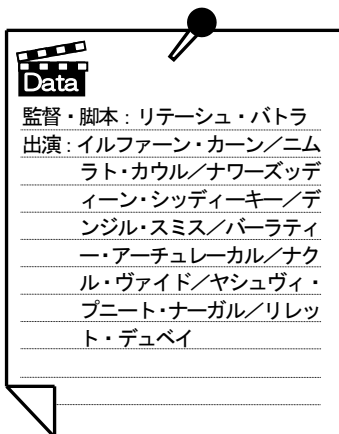 Data
監督・脚本:リテーシュ・バトラ
出演:イルファーン・カーン/ニム
ラト・カウル/ナワーズッデ
ィーン・シッディーキー/デ
ンジル・スミス/バーラティ
ー・アーチュレーカル/ナク
ル・ヴァイド/ヤシュヴィ・
プニート・ナーガル/リレッ
ト・デュベイ